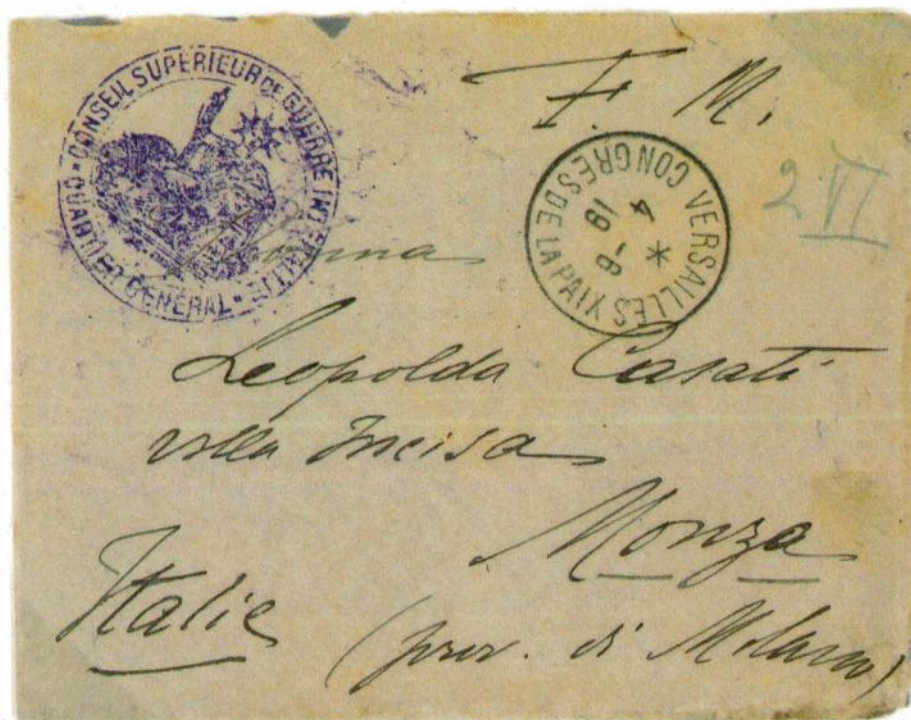 CONSEIL SUPERIEUR DE GUERRE INTERALLIE
QUARTIER GENERAL
F. M.
VERSAILLES
4
19 -6
CONGRES DE LA PAIX
2 VI
Donna
Leopolda Casati
villa Incisa
Monza
Italie (prov. di Milano)